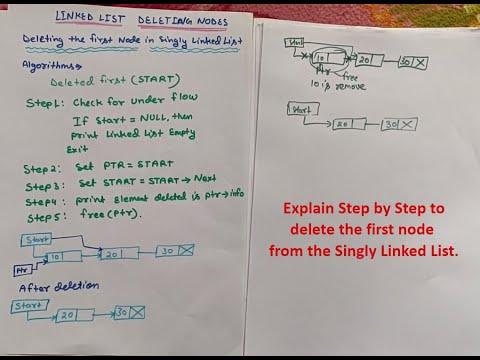 LINKED LIST DELETING NODES
Deleting the first Node in Singly Linked List
Algorithms→
Deleted first (START)
Step1: Check for under flow
If Start = NULL, then
print Linked List Empty
Exit
Step2: Set PTR = START
Step3: Set START = START → Next
Step4: print Element deleted is ptr→info
Step5: free(Ptr).
Start
10
20
30 X
Ptr
After deletion
Start
20
30 X
Start
10
20
30 X
Ptr
free
10 is
remove
Start
20
30 X
Explain Step by Step to
delete the first node
from the Singly Linked List.